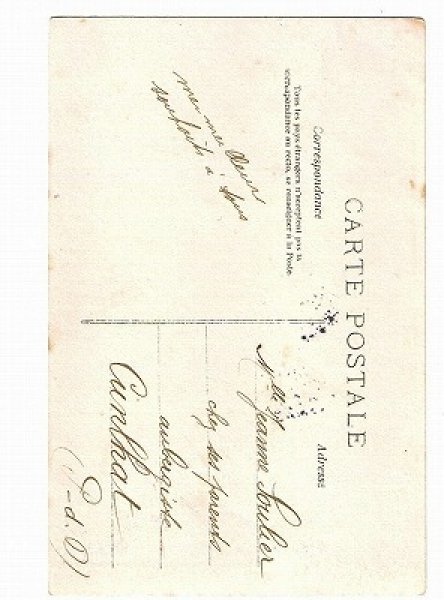 CARTE POSTALE
Correspondance
Tous les pays étrangers n'acceptent pas la
correspondance au recto, se renseigner à la Poste.
mes meilleurs
souhaits à tous
Adresse
Mlle Jeanne Soulier
chez ses parents
aubergiste
Cunlhat
(P-d. D)